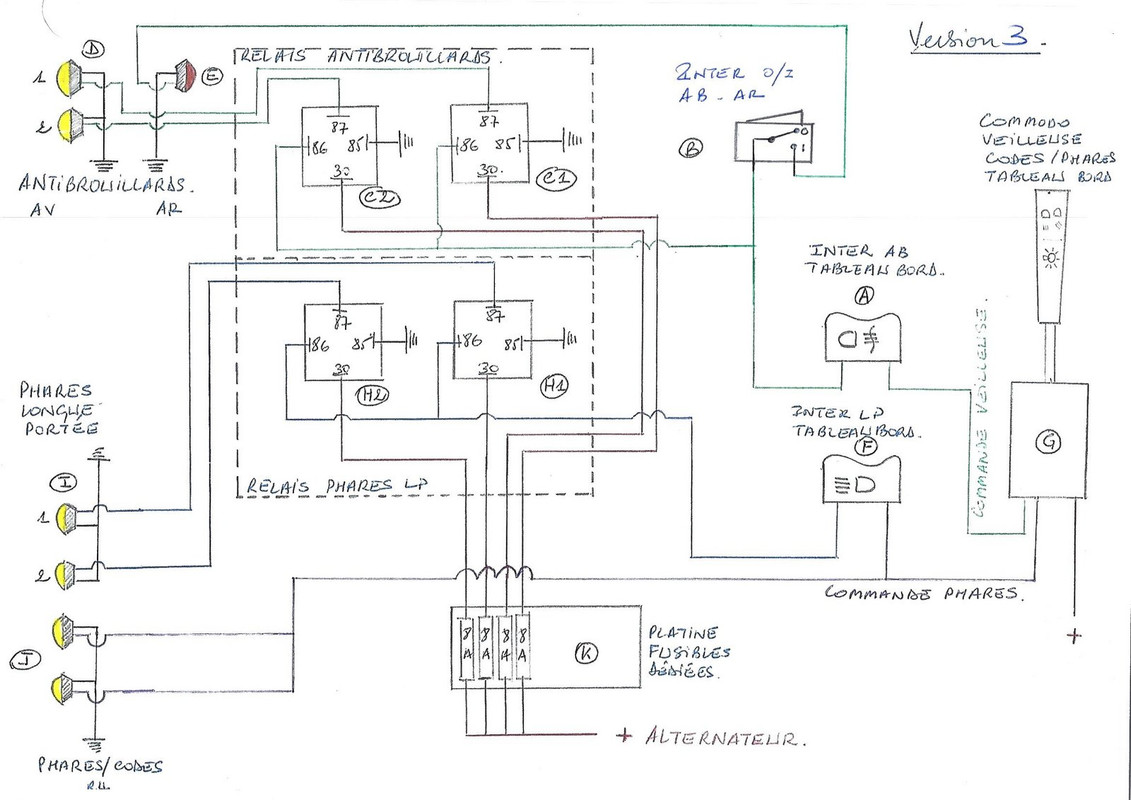 Version 3.
D
1
E
2
ANTIBROUILLARDS.
AV
AR
RELAIS ANTIBROUILLARDS.
87
86
85
30
C2
87
86
85
30.
C1
INTER O/I
AB - AR
B
0
1
COMMODO
VEILLEUSE
CODES/PHARES
TABLEAU BORD
INTER AB
TABLEAU BORD.
A
87
86
85
30
H2
87
86
85
30
H1
RELAIS PHARES LP
INTER LP
TABLEAU BORD.
F
COMMANDE VEILLEUSE.
G
PHARES
LONGUE
PORTÉE
I
1
2
COMMANDE PHARES.
+
J
PHARES/CODES
8 A
8 A
8 A
8 A
K
PLATINE
FUSIBLES
DÉDIÉES.
+ ALTERNATEUR.